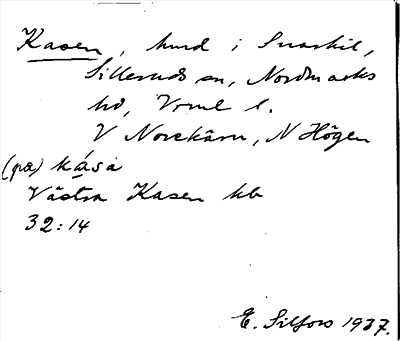 Kasen, hmd i Svarkil,
Silleruds sn, Nordmarks
hd, Vrml l.
V Norekärn, N Högen
(pa) kása
Västra Kasen kb
32:14
E. Silfors 1937.